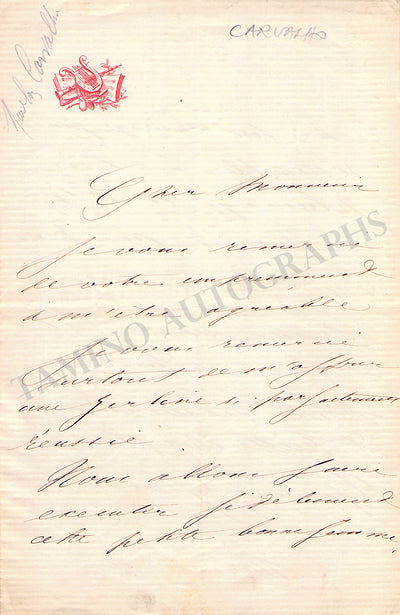 CARVALHO
Carvalho
Cher Monsieur
Je vous remercie
de votre empressement
à m'être agréable
et vous remercie
surtout de m'offrir
une Zerline si parfaitement
réussie
Nous allons faire
executer fidèlement
cette petite bonne femme.
TAMINO AUTOGRAPHS